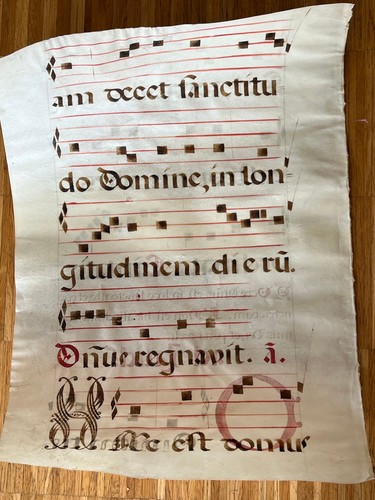 am decet sanctitu
do Domine, in lon=
gitudinem dierū.
Dn̄us regnavit. ā.
Hæc est domus